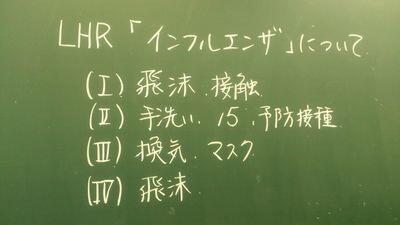 LHR「インフルエンザ」について
(I) 飛沫 接触
(II) 手洗い、15、予防接種
(III) 換気、マスク
(IV) 飛沫